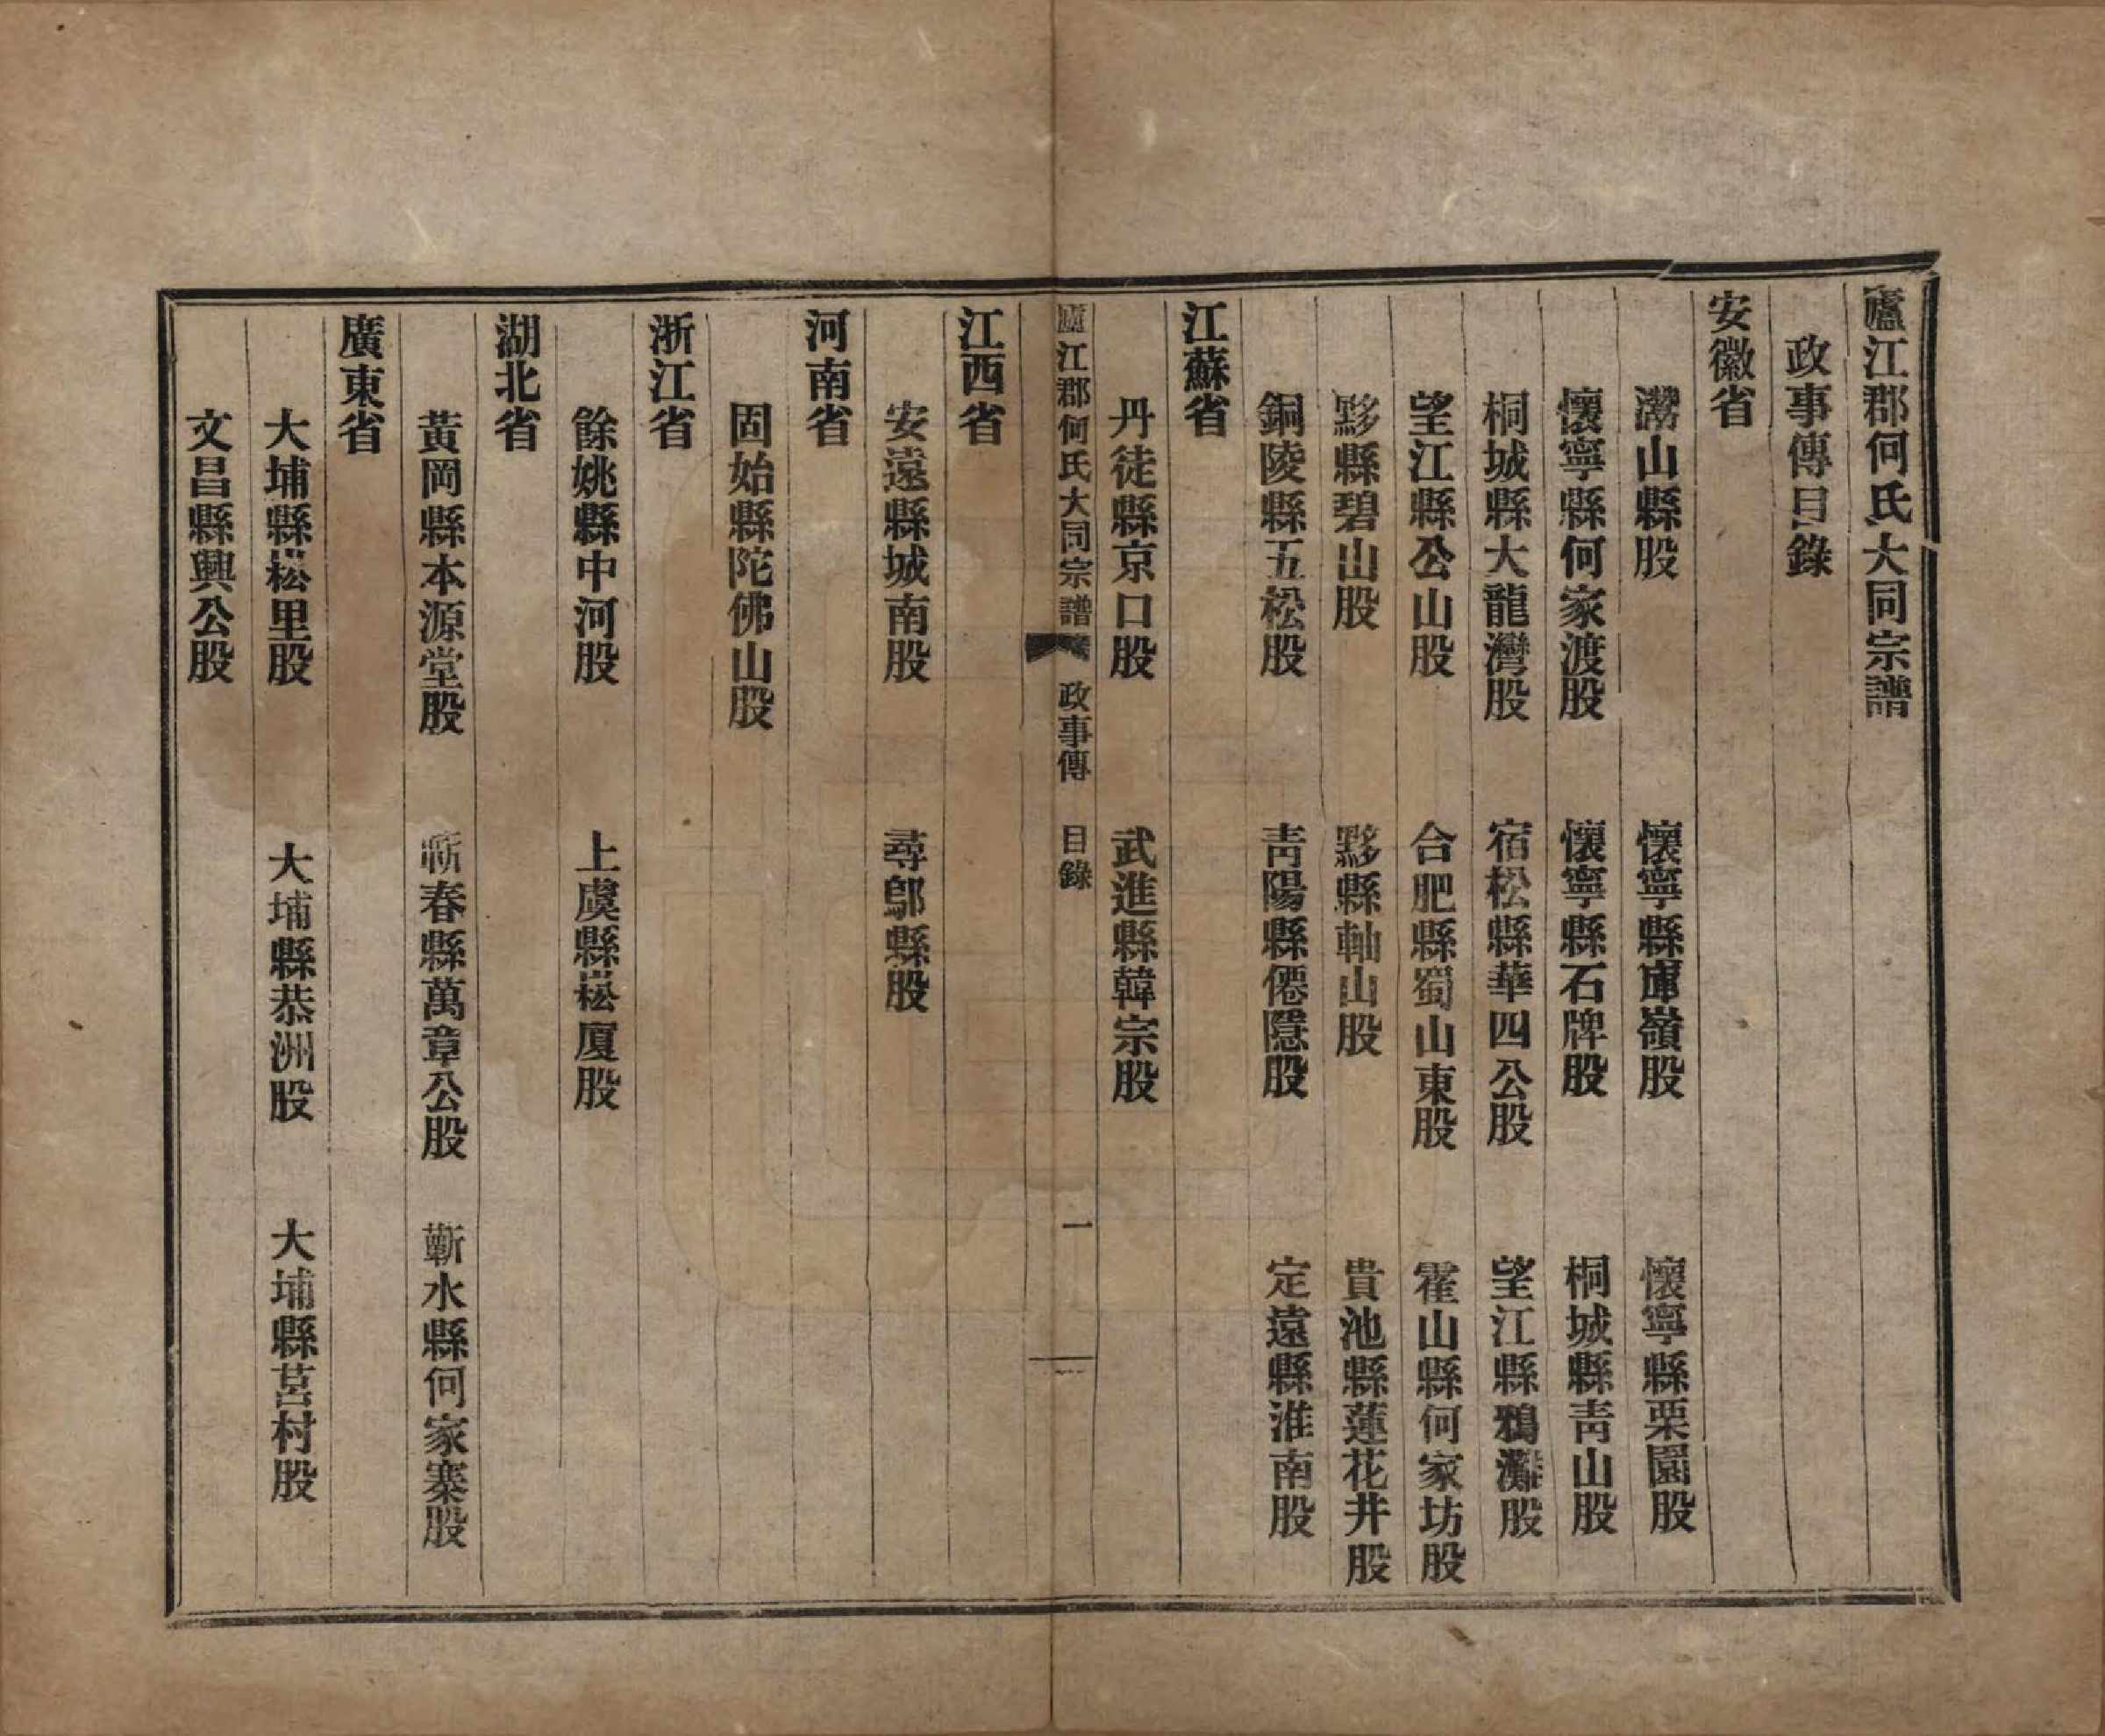 廬江郡何氏大同宗譜
政事傳目錄
安徽省
灊山縣股 懷寧縣庫嶺股 懷寧縣栗園股
懷寧縣何家渡股 懷寧縣石牌股 桐城縣靑山股
桐城縣大龍灣股 宿松縣華四公股 望江縣鴉灘股
望江縣公山股 合肥縣蜀山東股 霍山縣何家坊股
黟縣碧山股 黟縣軸山股 貴池縣蓮花井股
銅陵縣五松股 靑陽縣僊隱股 定遠縣淮南股
江蘇省
丹徒縣京口股 武進縣韓宗股
廬江郡何氏大同宗譜 政事傳 目錄 一
江西省
安遠縣城南股 尋鄔縣股
河南省
固始縣陀佛山股
浙江省
餘姚縣中河股 上虞縣崧廈股
湖北省
黃岡縣本源堂股 蘄春縣萬章公股 蘄水縣何家寨股
廣東省
大埔縣崧里股 大埔縣恭洲股 大埔縣莒村股
文昌縣興公股